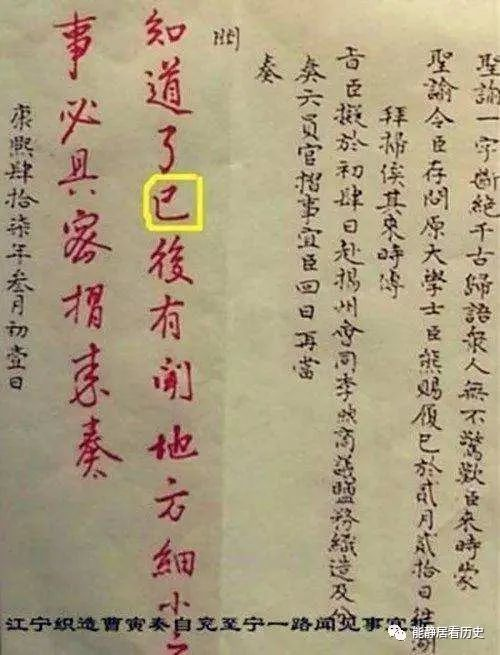 聖諭一字斷絕千古歸語衆人無不驚歎臣來時蒙
聖諭令臣存問原大學士臣熊賜履已於貳月貳拾日往湖
拜掃俟其來時傳
旨臣擬於初肆日赴揚州會同李煦商議鹽務織造及分
奏六員官摺事宜臣回日再當
奏
聞
知道了已後有聞地方細小之
事必具密摺來奏
康熙肆拾柒年叁月初壹日
江宁织造曹寅奏自兖至宁一路闻见事宜折
能静居看历史